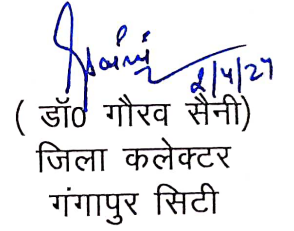 ( डॉ0 गौरव सैनी)
जिला कलेक्टर
गंगापुर सिटी